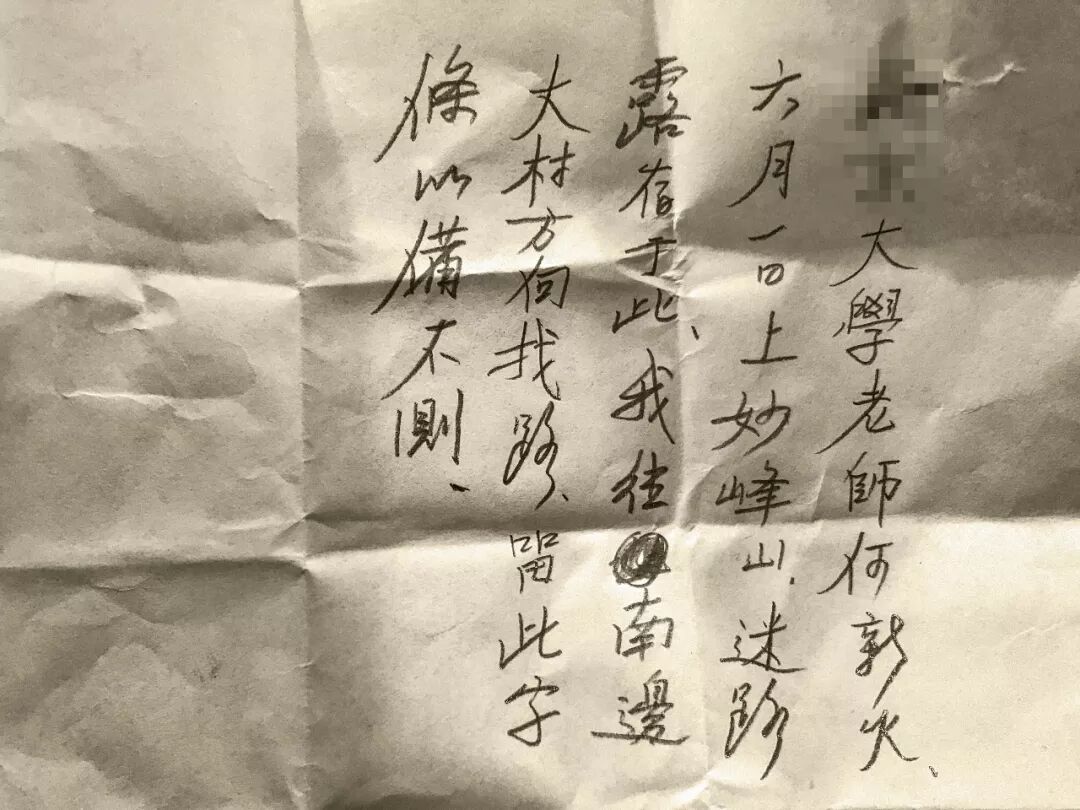 大學老師何新火、
六月一日上妙峰山、迷路
露宿于此、我往南邊
大村方向找路、留此字
條以備不測、